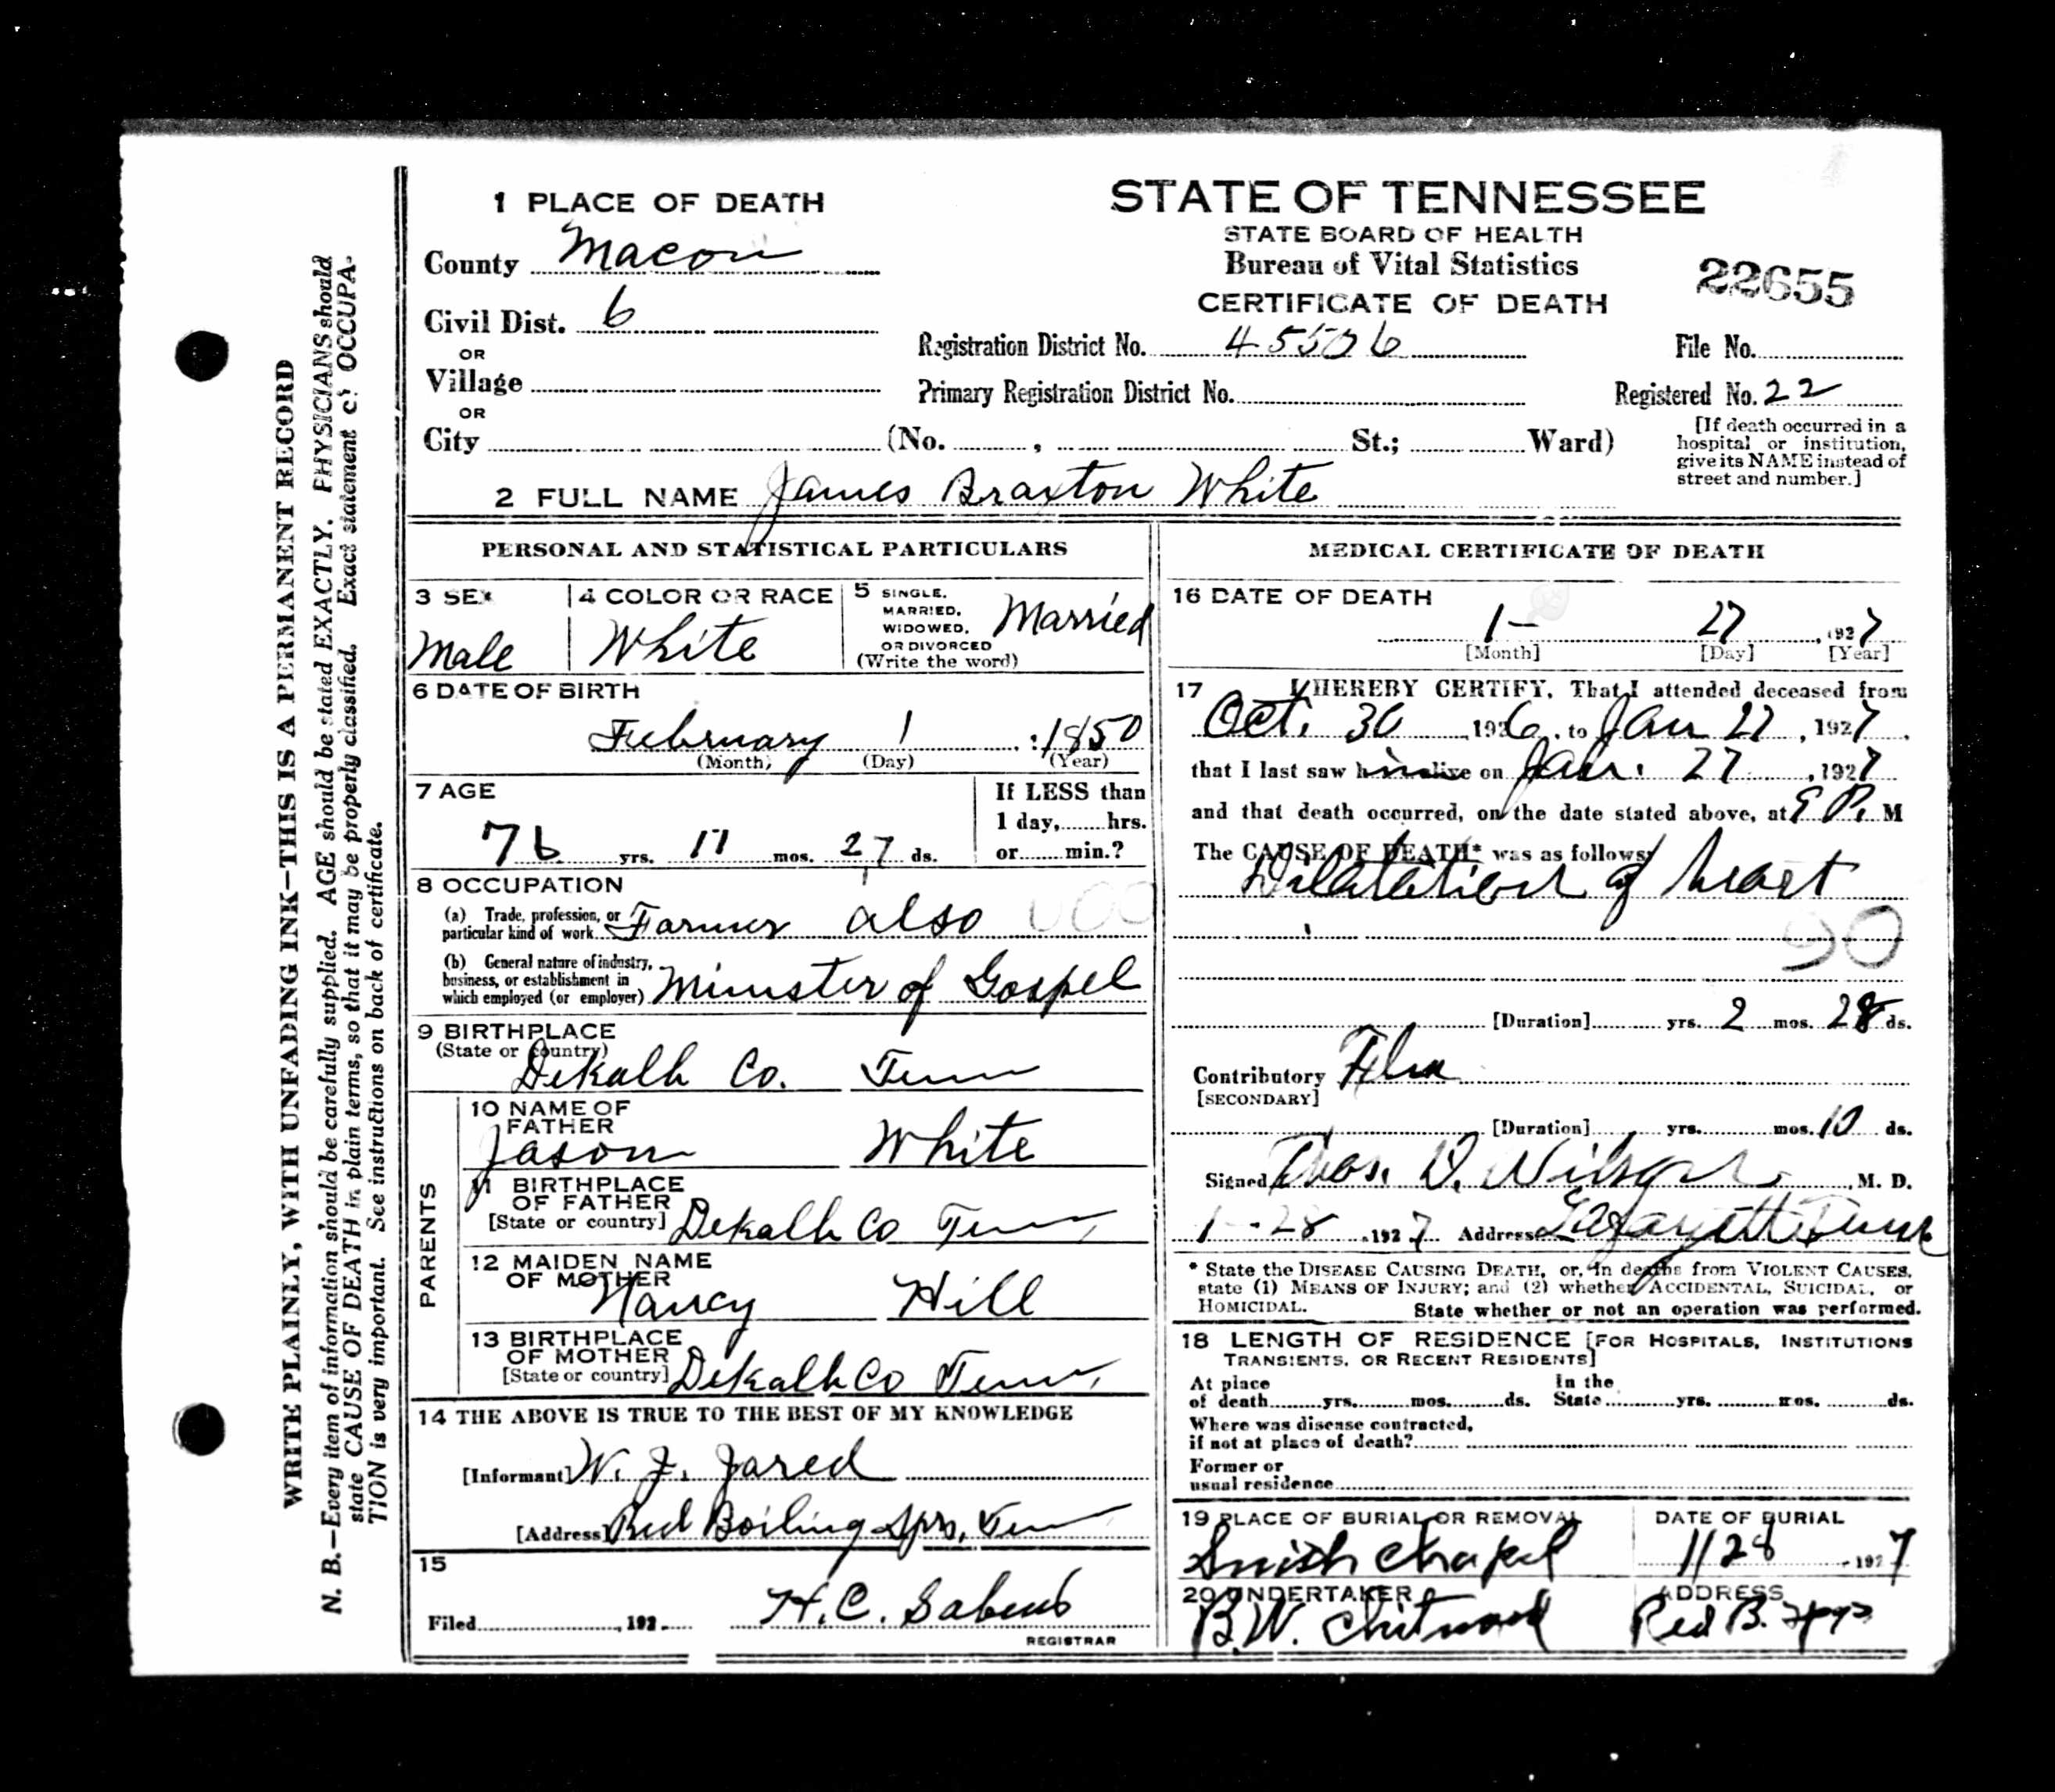 WRITE PLAINLY, WITH UNFADING INK—THIS IS A PERMANENT RECORD
N. B.—Every item of information should be carefully supplied. AGE should be stated EXACTLY. PHYSICIANS should
state CAUSE OF DEATH in plain terms, so that it may be properly classified. Exact statement of OCCUPA-
TION is very important. See instructions on back of certificate.
1 PLACE OF DEATH
County Macon
Civil Dist. 6
OR
Village
OR
City (No. , St.; Ward)
STATE OF TENNESSEE
STATE BOARD OF HEALTH
Bureau of Vital Statistics
CERTIFICATE OF DEATH
22655
Registration District No. 45506
File No.
Primary Registration District No.
Registered No. 22
[If death occurred in a
hospital or institution,
give its NAME instead of
street and number.]
2 FULL NAME James Braxton White
PERSONAL AND STATISTICAL PARTICULARS
3 SEX
Male
4 COLOR OR RACE
White
5 SINGLE,
MARRIED,
WIDOWED,
OR DIVORCED
(Write the word)
Married
6 DATE OF BIRTH
February 1 1850
(Month) (Day) (Year)
7 AGE
76 yrs. 11 mos. 27 ds.
If LESS than
1 day, hrs.
or min.?
8 OCCUPATION
(a) Trade, profession, or
particular kind of work Farmer also
(b) General nature of industry,
business, or establishment in
which employed (or employer) Minister of Gospel
9 BIRTHPLACE
(State or country)
Dekalb Co. Tenn
PARENTS
10 NAME OF
FATHER
Jason White
11 BIRTHPLACE
OF FATHER
[State or country] Dekalb Co Tenn
12 MAIDEN NAME
OF MOTHER
Nancy Hill
13 BIRTHPLACE
OF MOTHER
[State or country] Dekalb Co Tenn,
14 THE ABOVE IS TRUE TO THE BEST OF MY KNOWLEDGE
[Informant] W. J. Jared
[Address] Red Boiling Sprs, Tenn
15
Filed , 192 H. C. Sabens
REGISTRAR
MEDICAL CERTIFICATE OF DEATH
16 DATE OF DEATH
1- 27 , 1927
[Month] [Day] [Year]
17 I HEREBY CERTIFY, That I attended deceased from
Oct. 30 , 1926, to Jan 27 , 1927.
that I last saw him alive on Jan. 27 , 1927
and that death occurred, on the date stated above, at P. M
The CAUSE OF DEATH* was as follows:
Dilatation of heart
90
[Duration] yrs. 2 mos. 28 ds.
Contributory
[SECONDARY]
[Duration] yrs. mos. 10 ds.
Signed Thos. D. Wilson , M. D.
1-28 , 1927 Address Lafayette Tenn
* State the DISEASE CAUSING DEATH, or, in deaths from VIOLENT CAUSES,
state (1) MEANS OF INJURY; and (2) whether ACCIDENTAL, SUICIDAL, or
HOMICIDAL. State whether or not an operation was performed.
18 LENGTH OF RESIDENCE [FOR HOSPITALS, INSTITUTIONS
TRANSIENTS, OR RECENT RESIDENTS]
At place In the
of death yrs. mos. ds. State yrs. mos. ds.
Where was disease contracted,
if not at place of death?
Former or
usual residence
19 PLACE OF BURIAL OR REMOVAL
Smith Chapel
DATE OF BURIAL
1/28 1927
20 UNDERTAKER
B.W. Chitwood
ADDRESS
Red B. Spgs